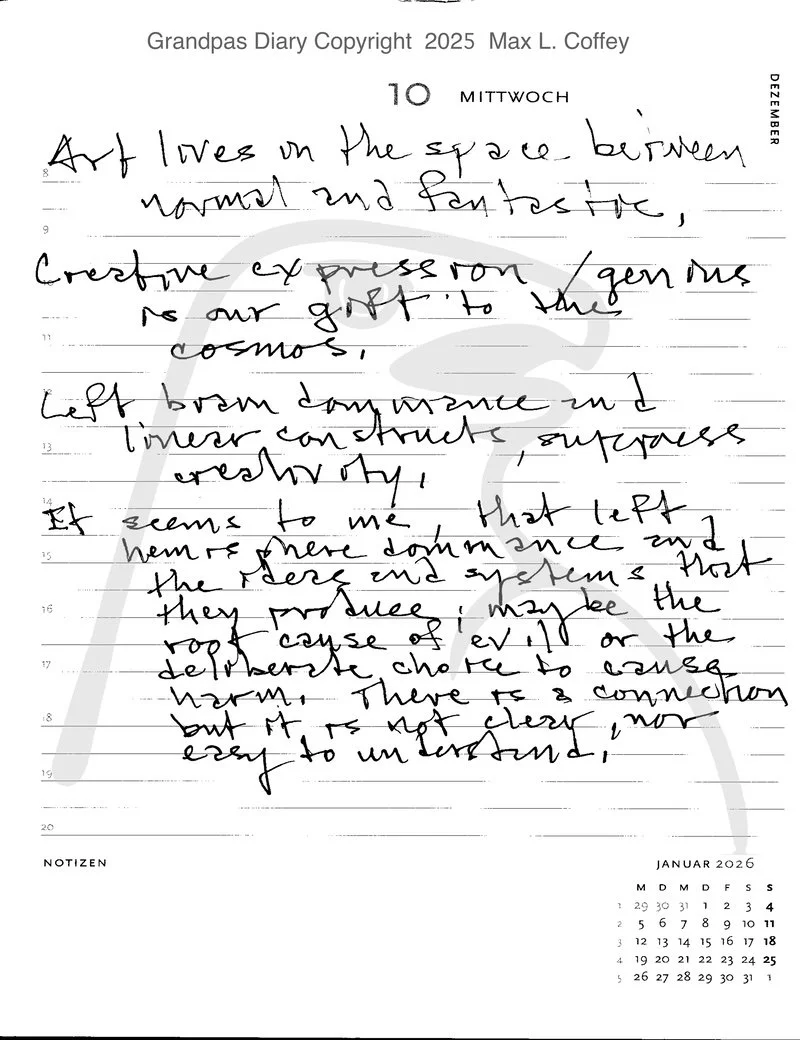 Grandpas Diary Copyright 2025 Max L. Coffey
10 MITTWOCH
DEZEMBER
Art lives in the space between
8
normal and fantastic,
9
Creative expression / genius
is our gift to the
11
cosmos.
12
Left brain dominance and
linear constructs, suppress
13
creativity.
14
It seems to me, that left,
hemisphere dominance and
15
the ideas and systems that
they produce, may be the
16
root cause of evil or the
deliberate choice to cause
17
harm. There is a connection
but it is not clear, nor
18
easy to understand.
19
20
NOTIZEN
JANUAR 2026
M D M D F S S
1 29 30 31 1 2 3 4
2 5 6 7 8 9 10 11
3 12 13 14 15 16 17 18
4 19 20 21 22 23 24 25
5 26 27 28 29 30 31 1